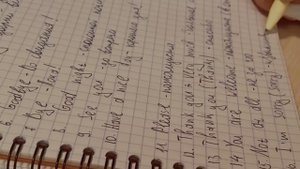 6. Goodbye - До свидания!
7. Bye - Пока!
8. Good night - спокойной ночи
9. See you - до встречи
10. Have a nice day - хорошего дня!
11. Please - пожалуйста
12. Thank you very much - большое
13 Thank you (Thanks) - спасибо
14 You are welcome - пожалуйста
15 Not at all - не за что
I'm sorry, Sorry -